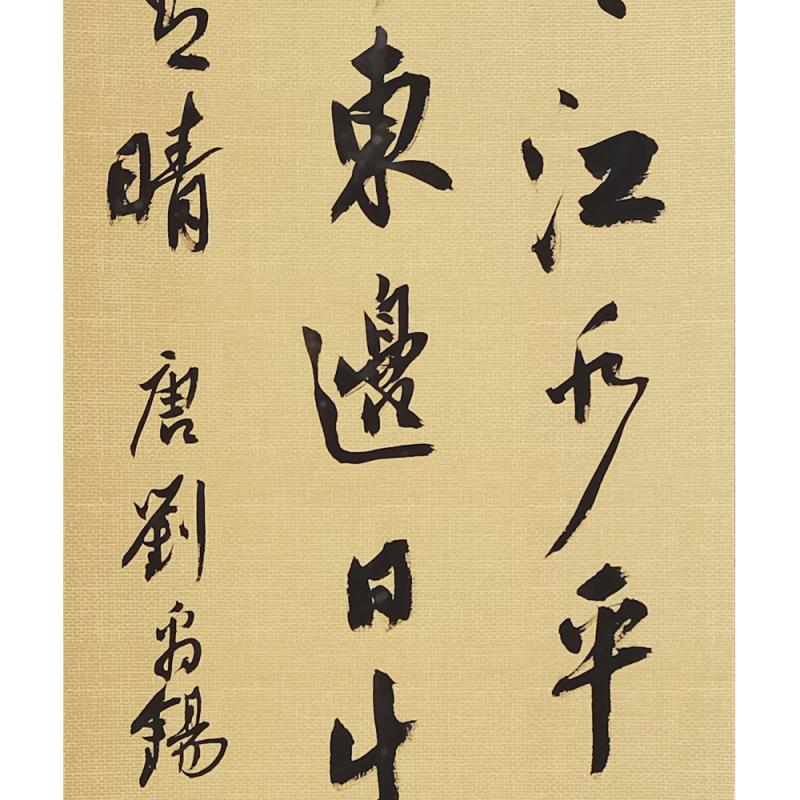 江水平
東邊日出
晴 唐劉禹錫